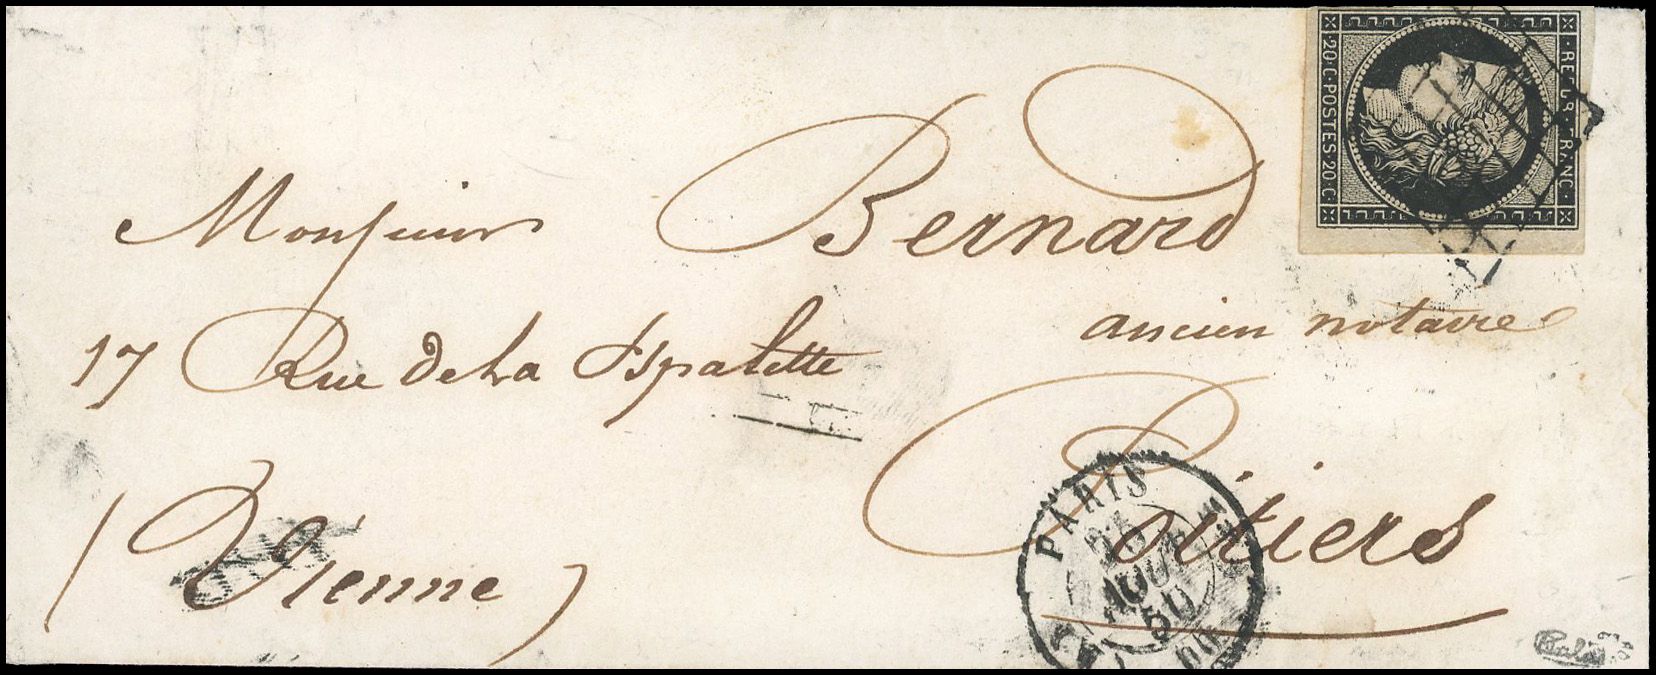 REPUB FRANC
20·C·POSTES 20·C
Monsieur Bernard
ancien notaire
17 Rue de la Espalette
Poitiers
(Vienne)
PARIS
AOUT
50